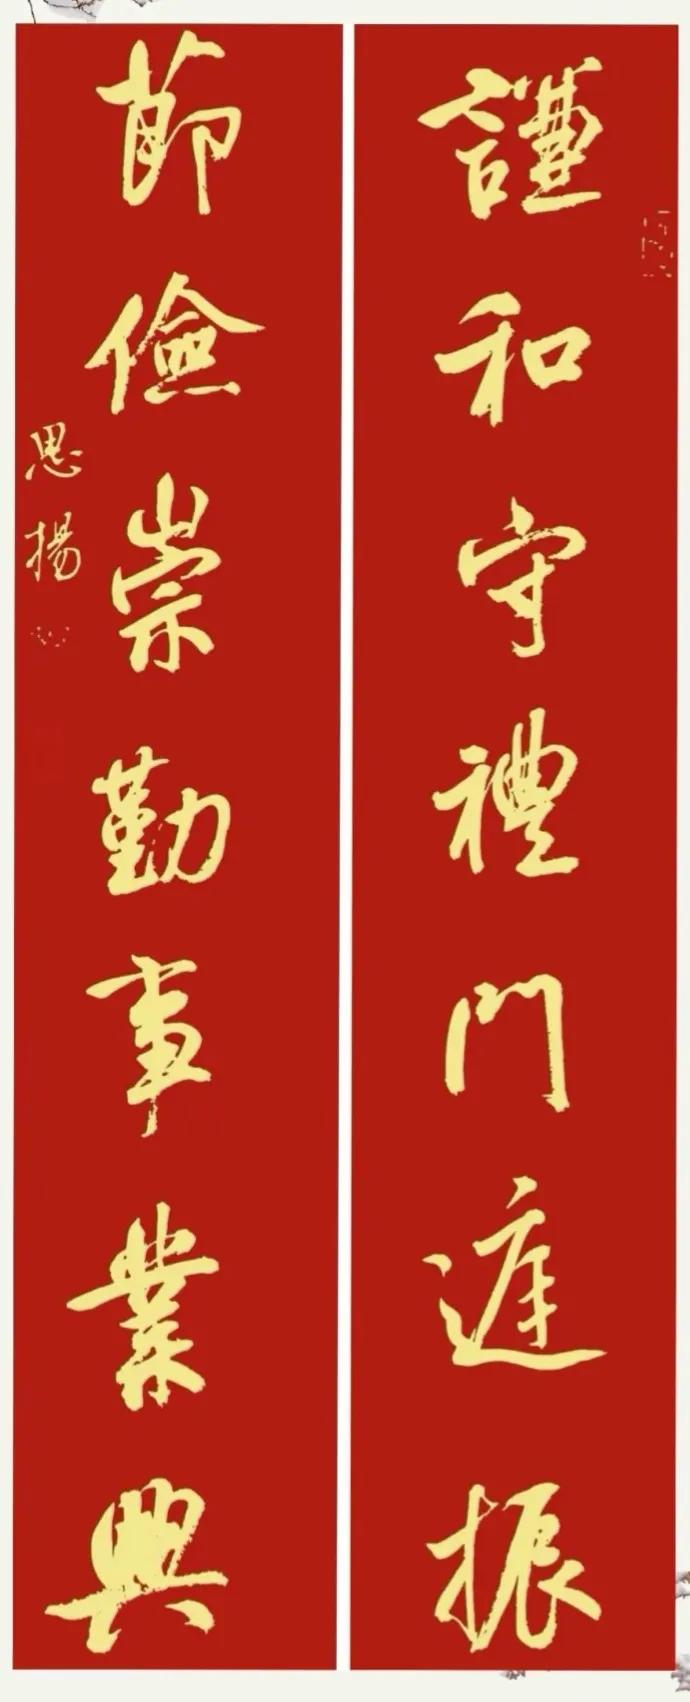 謙和守禮門庭振
節儉崇勤事業興
思揚